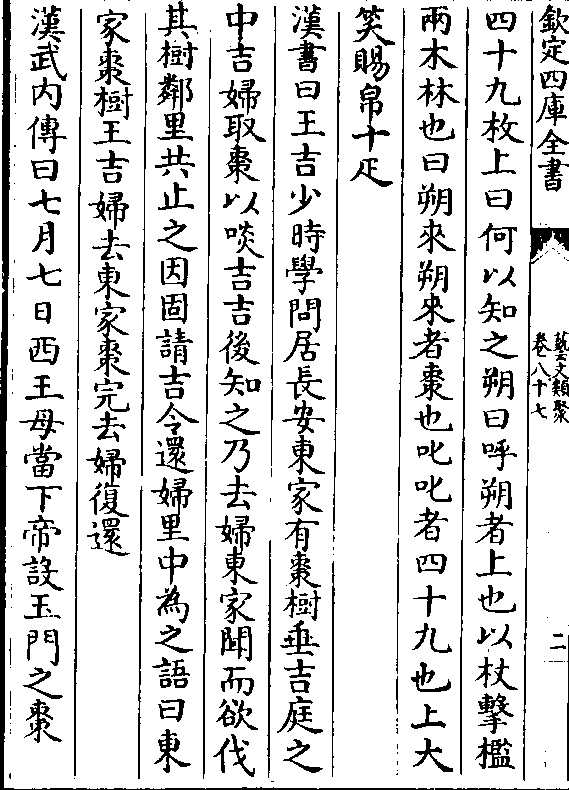 欽定四庫全書
藝文類聚
卷八十七
二
四十九枚上曰何以知之朔曰呼朔者上也以杖擊檻
兩木林也曰朔來朔來者棗也叱叱者四十九也上大
笑賜帛十疋
漢書曰王吉少時學問居長安東家有棗樹垂吉庭之
中吉婦取棗以啖吉吉後知之乃去婦東家聞而欲伐
其樹鄰里共止之因固請吉令還婦里中為之語曰東
家棗樹王吉婦去東家棗完去婦復還
漢武內傳曰七月七日西王母當下帝設玉門之棗